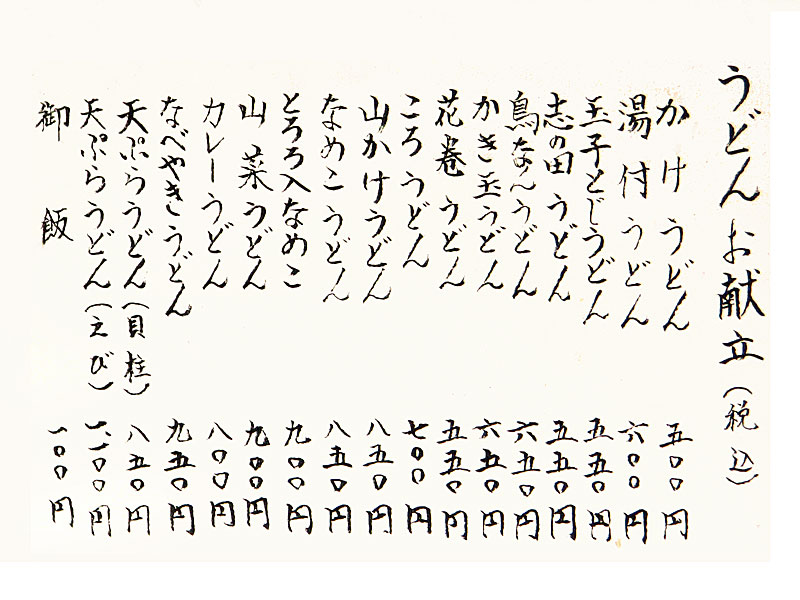 うどんお献立(税込)
かけうどん 五〇〇円
湯付うどん 六〇〇円
玉子とじうどん 五五〇円
志の田うどん 五五〇円
鳥なんうどん 六五〇円
かき玉うどん 六五〇円
花巻うどん 五五〇円
ころうどん 七〇〇円
山かけうどん 八五〇円
なめこうどん 八五〇円
とろろ入なめこ 九〇〇円
山菜うどん 九〇〇円
カレーうどん 八〇〇円
なべやきうどん 九五〇円
天ぷらうどん(貝柱) 八五〇円
天ぷらうどん(えび) 一、一〇〇円
御飯 一〇〇円